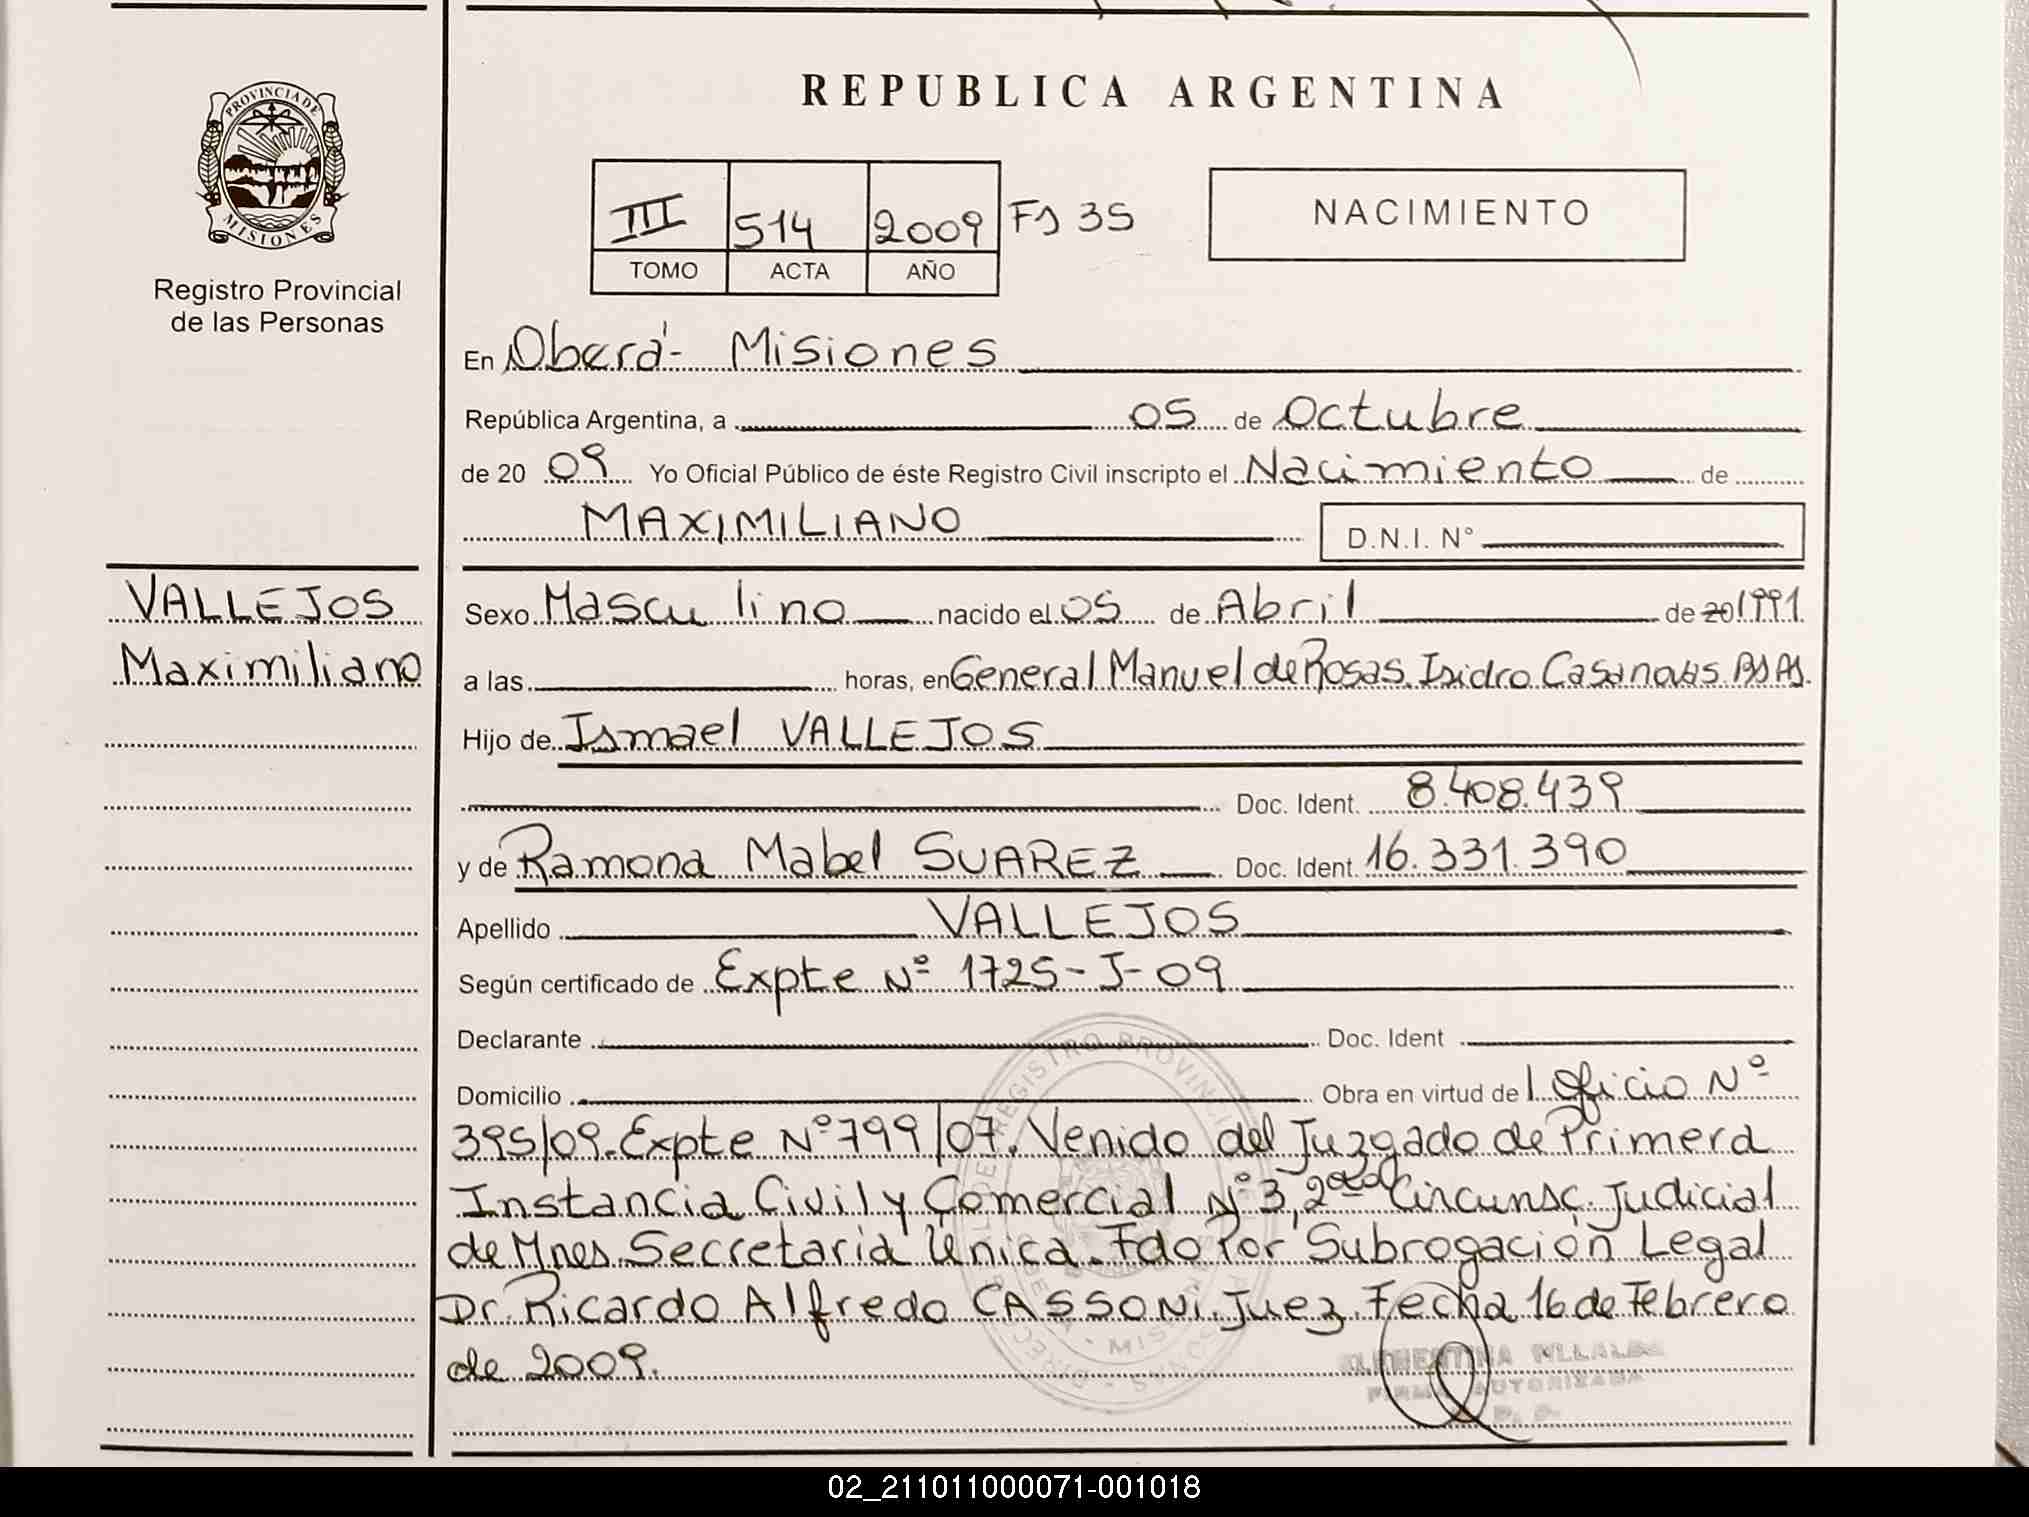 REPUBLICA ARGENTINA
PROVINCIA DE
MISIONES
Registro Provincial
de las Personas
III 514 2009 Fs 35
TOMO ACTA AÑO
NACIMIENTO
En Oberá - Misiones
República Argentina, a 05 de Octubre
de 20 09 Yo Oficial Público de éste Registro Civil inscripto el Nacimiento de
MAXIMILIANO D.N.I. N°
VALLEJOS
Maximiliano
Sexo Masculino nacido el 05 de Abril de 20 1991
a las horas, en General Manuel de Rosas. Isidro Casanovas BsAs.
Hijo de Ismael VALLEJOS
Doc. Ident. 8.408.439
y de Ramona Mabel SUAREZ Doc. Ident. 16.331.390
Apellido VALLEJOS
Según certificado de Expte Nº 1725-J-09
Declarante Doc. Ident
Domicilio Obra en virtud de Oficio Nº
395/09. Expte Nº 799/07. Venido del Juzgado de Primera
Instancia Civil y Comercial Nº 3, 2da Circunsc. Judicial
de Mnes. Secretaria Única. Fdo Por Subrogación Legal
Dr. Ricardo Alfredo CASSONi. Juez. Fecha 16 de Febrero
de 2009.
FIRMA AUTORIZADA
02_211011000071-001018